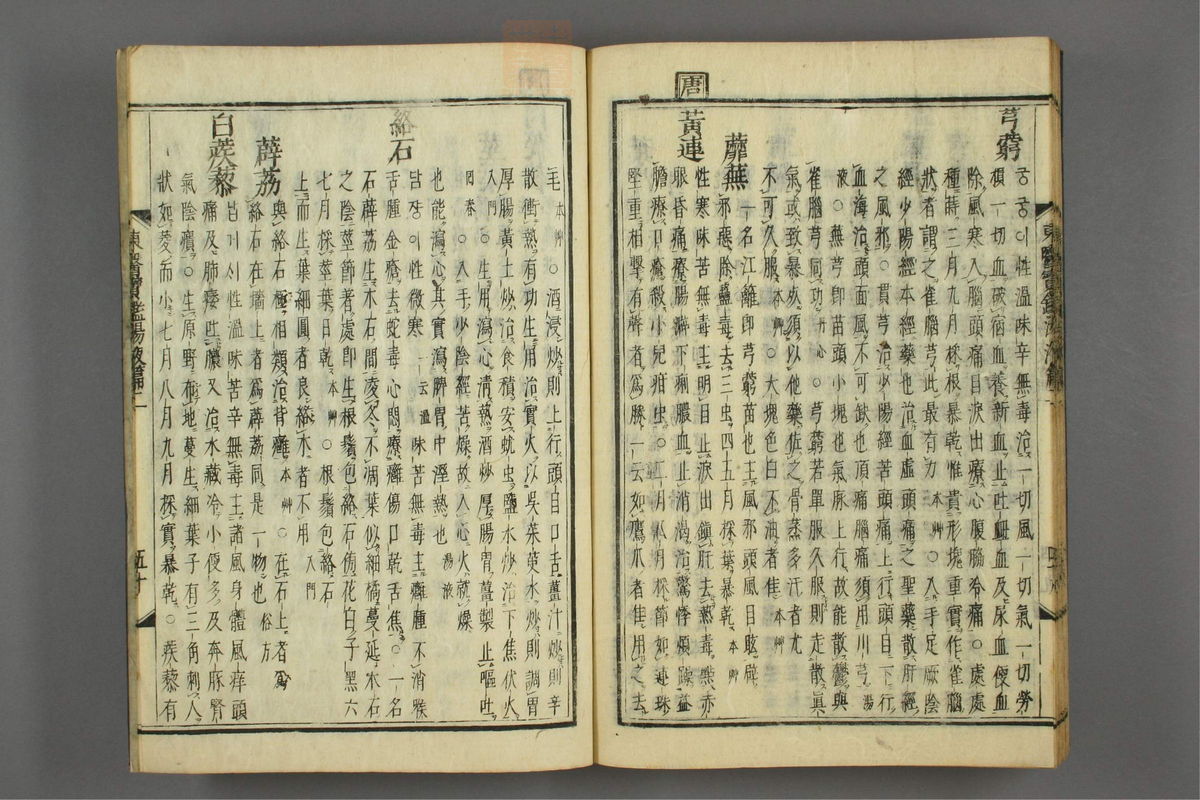 芎藭
궁궁이性溫味辛無毒治一切風一切氣一切勞
損一切血破宿血養新血止吐衄血及尿血便血
除風寒入腦頭痛目淚出療心腹脇冷痛○處處
種蒔三月九月採根暴乾惟貴形塊重實作雀腦
狀者謂之雀腦芎此最有力本艸○入手足厥陰
經少陽經本經藥也治血虛頭痛之聖藥散肝經
之風邪○貫芎治少陽經苦頭痛上行頭目下行
血海治頭面風不可缺也頂痛腦痛須用川芎湯
液○蕪芎卽苗頭小塊也氣脉上行故能散鬱與
雀腦芎同功丹心○芎藭若單服久服則走散眞
氣或致暴死須以他藥佐之骨蒸多汗者尤
不可久服本艸○大塊色白不油者佳本艸
蘼蕪
一名江籬卽芎藭苗也主風邪頭風目眩辟
邪惡除蠱毒去三虫四五月採葉暴乾本艸
唐
黃連
性寒味苦無毒主明目止淚出鎭肝去熱毒點赤
眼昏痛療腸澼下痢膿血止消渴治驚悸煩躁益
膽療口瘡殺小兒疳虫○二月八月採節如連珠
堅重相擊有聲者爲勝一云如鷹爪者佳用之去
東醫寶鑑湯液篇
毛本艸○酒浸炒則上行頭目口舌薑汁炒則辛
散衝熱有功生用治實火以吳茱萸水炒則調胃
厚腸黃土炒治食積安蛔虫鹽水炒治下焦伏火
入門○生用瀉心淸熱酒炒厚腸胃薑製止嘔吐
回春○入手少陰經苦燥故入心火就燥
也能瀉心其實瀉脾胃中濕熱也湯液
絡石
담쟝이性微寒一云溫味苦無毒主癰腫不消喉
舌腫金瘡去蛇毒心悶療癰傷口乾舌焦○一名
石薜荔生木石間凌冬不凋葉似細橘蔓延木石
之陰莖節着處卽生根鬚包絡石傍花白子黑六
七月採莖葉日乾本艸○根鬚包絡石
上而生葉細圓者良絡木者不用入門
薜荔
與絡石極相類治背癰本艸○在石上者爲
絡石在墻上者爲薜荔同是一物也俗方
白蒺藜
性溫味苦辛無毒主諸風身體風痒頭
痛及肺痿吐膿又治水藏冷小便多及奔豚腎
氣陰㿗○生原野布地蔓生細葉子有三角刺人
狀如菱而小七月八月九月採實暴乾○蒺藜有
東醫寶鑑湯液篇二
五十